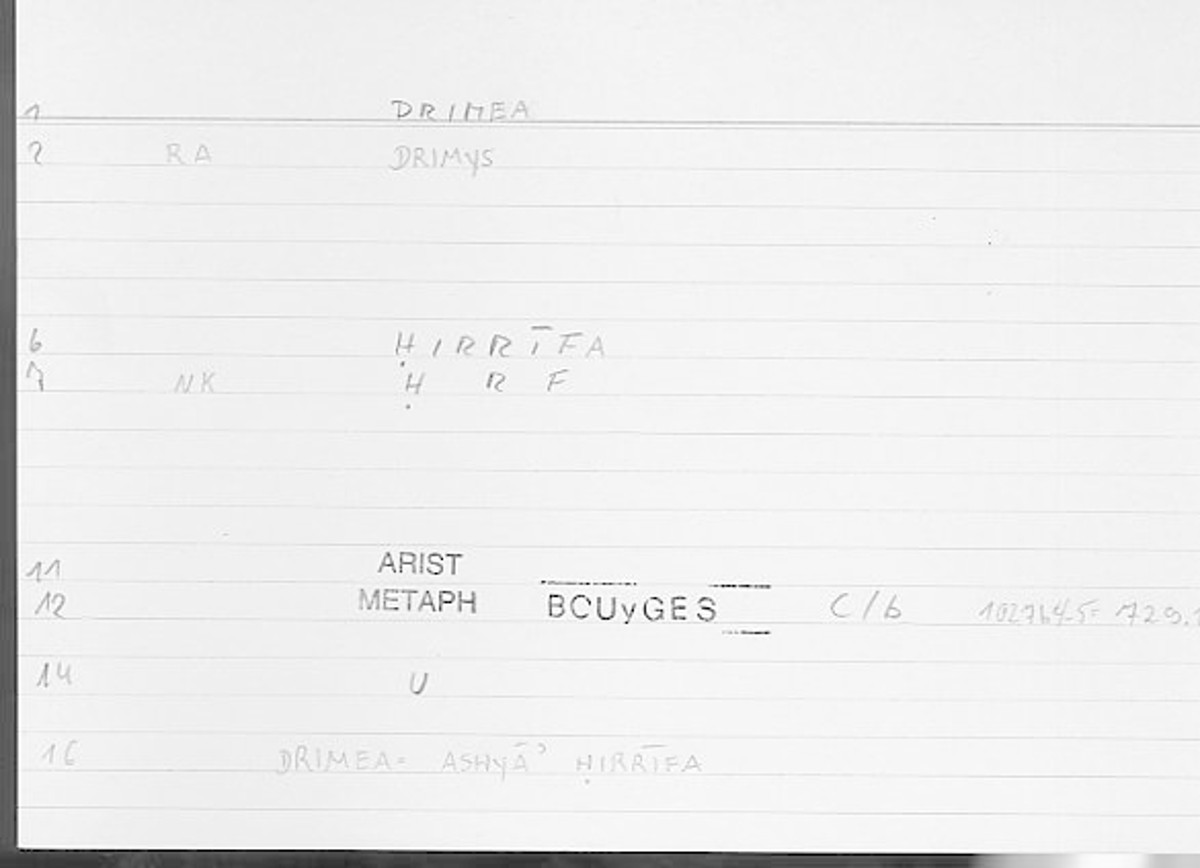 1 DRIMEA
2 RA DRIMyS
6 ḤIRRĪFA
7 NK Ḥ R F
11 ARIST
12 METAPH BCUyGES C/b 102764-5= 729.1
14 U
16 DRIMEA= ASHyĀ' ḤIRRĪFA